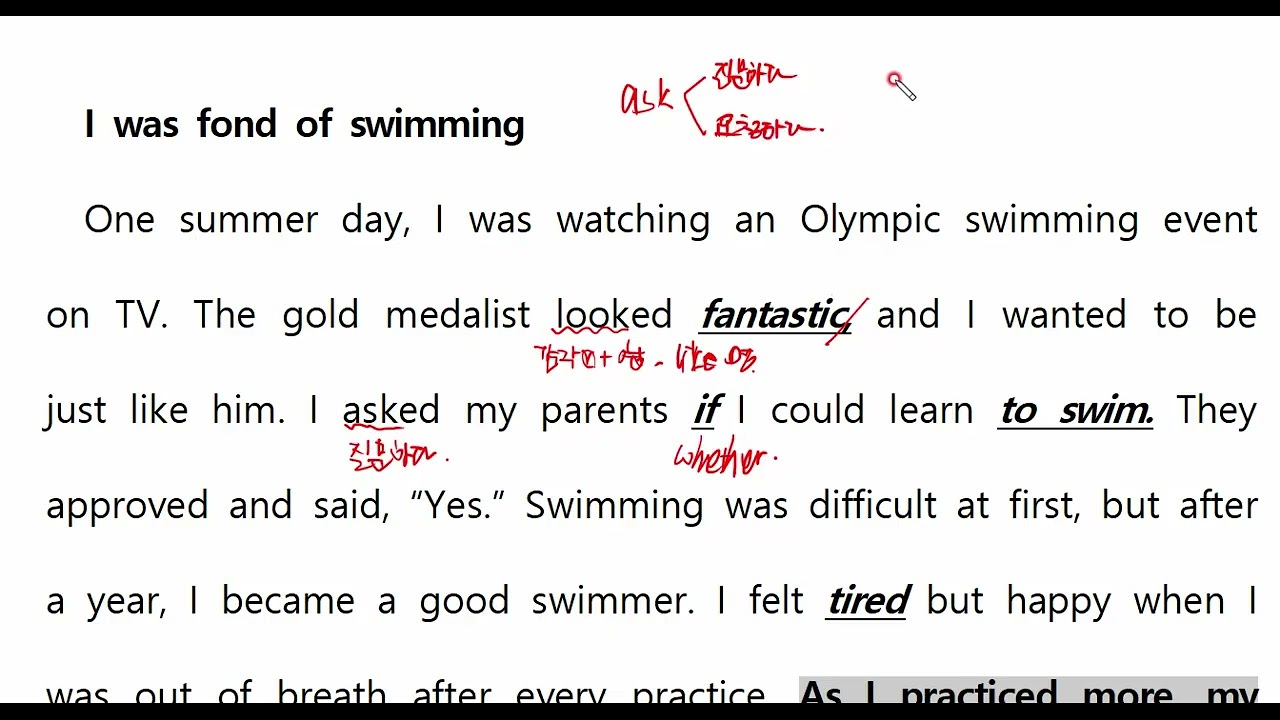 ask 질문하다
요청하다.
I was fond of swimming
One summer day, I was watching an Olympic swimming event
on TV. The gold medalist looked fantastic, and I wanted to be
감각V+형. like 명.
just like him. I asked my parents if I could learn to swim. They
질문하다. whether.
approved and said, “Yes.” Swimming was difficult at first, but after
a year, I became a good swimmer. I felt tired but happy when I
was out of breath after every practice. As I practiced more, my